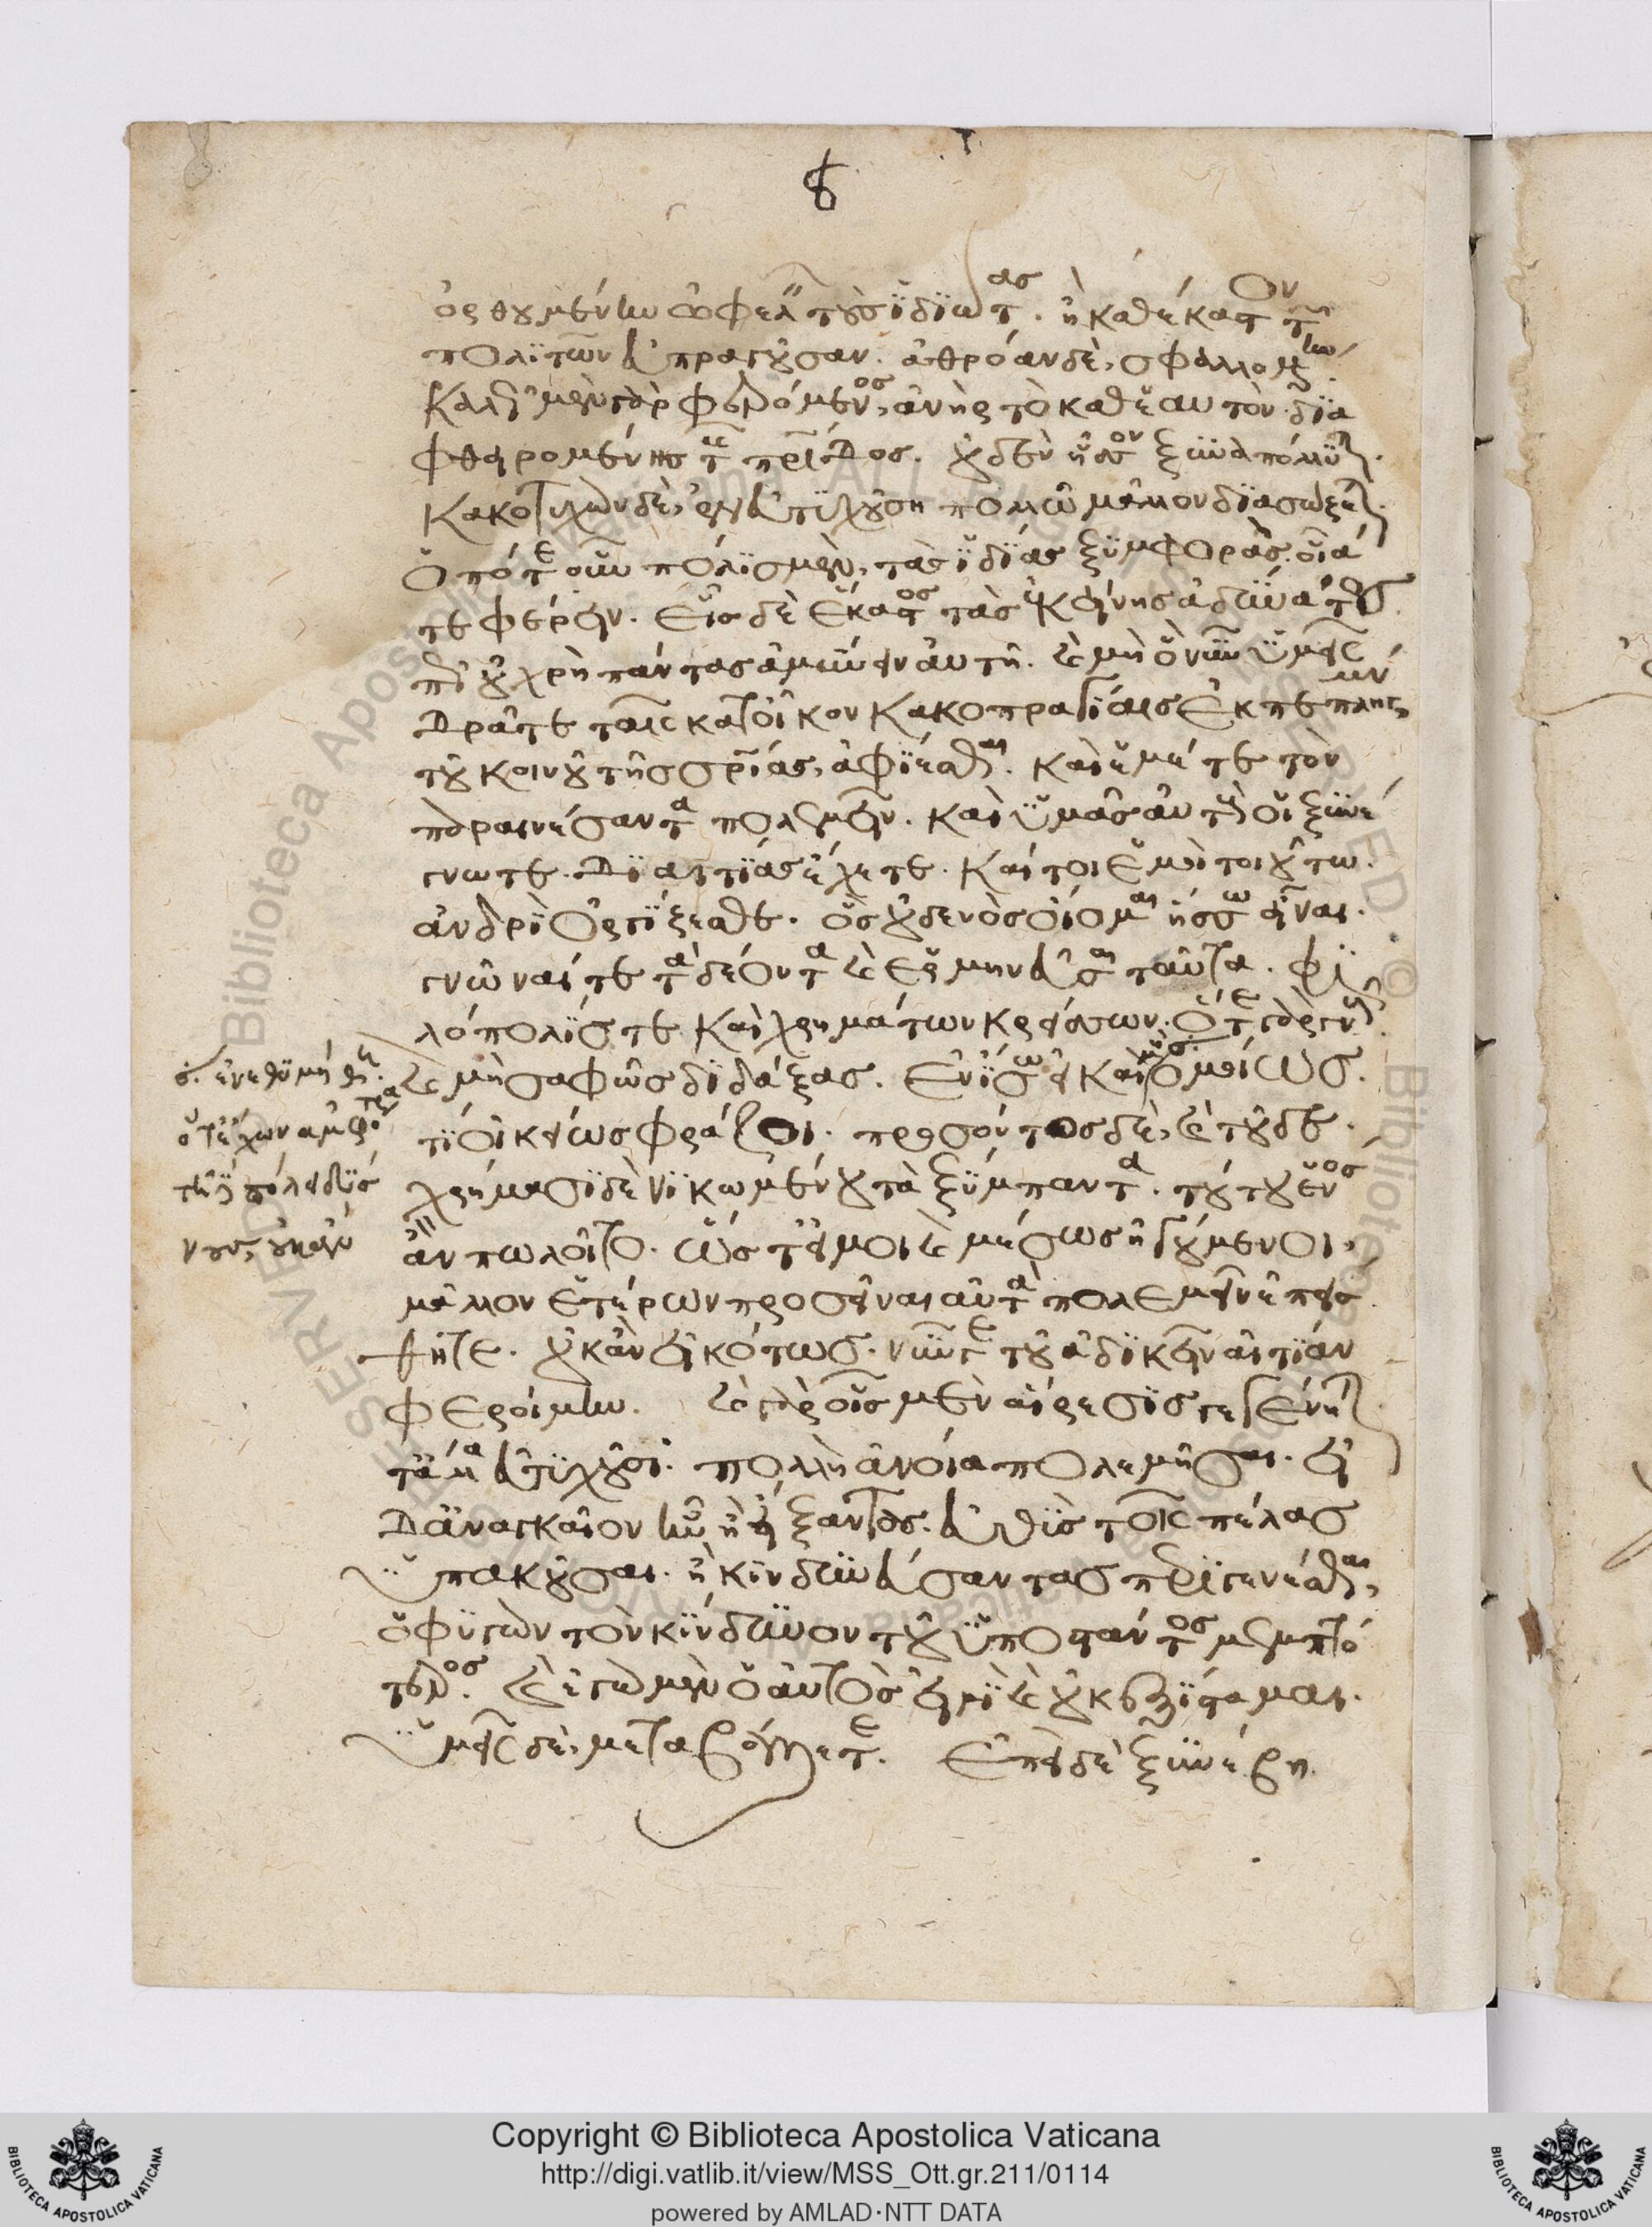 β
ὀρθουμένην ὠφελεῖν τοὺς ἰδιώτας. ἢ καθέκαστον τῶν
πολιτῶν εὐπραγοῦσαν. ἀθρόαν δὲ, σφαλλομένην.
Καλῶς μὲν γὰρ φερόμενος, ἀνὴρ τὸ καθ' ἑαυτὸν δια
φθειρομένης τῆς πατρίδος. οὐδὲν ἧσσον ξυναπόλλυται.
Κακοτυχῶν δὲ, ἐν εὐτυχούσῃ πολλῶ μᾶλλον διασώζεται.
Ὁπότε οὖν πόλις μὲν, τὰς ἰδίας ξυμφορὰς οἵα
τε φέρειν. Εἷς δὲ ἕκαστος τὰς ἐκείνης ἀδύνατος
πῶς οὐ χρὴ πάντας ἀμύνειν αὐτῆ. καὶ μὴ ὃ νῦν ὑμεῖς
δρᾶτε ταῖς κατοῖκον κακοπραγίαις ἐκπεπληγμένοι
τοῦ κοινοῦ τῆς σωτηρίας, ἀφίεσθαι. καὶ ἐμέ τε τὸν
παραινέσαντα πολεμεῖν. καὶ ὑμᾶς αὐτοὺς οἳ ξυνέ
γνωτε. δι αἰτίας ἔχετε. Καίτοι ἐμοὶ τοιούτω.
ἀνδρὶ ὀργίζεσθε. ὃς οὐδενὸς οἴομαι ἥσσω εἶναι.
γνῶναί τε τὰ δέοντα καὶ ἑρμηνεῦσαι ταῦτα. φι
λόπολίς τε καὶ χρημάτων κρείσσων. ὅτε γὰρ γνοὺς
καὶ μὴ σαφῶς διδάξας. ἐν ἴσω εἰ καὶ ὁμοίως.
τι οἰκείως φράζοι. προσόντος δὲ, καὶ τοῦδε.
χρήμασι δὲ νικωμένου τὰ ξύμπαντα. τούτου ἑνὸς
ἂν πωλοῖτο. ὥστ' εἴ μοι καὶ μέσως ἡγούμενοι,
μᾶλλον ἑτέρων προσεῖναι αὐτὰ πολεμεῖν ἐπείσ
θητε. οὐκ ἂν εἰκότως. νῦν γε τοῦ ἀδικεῖν αἰτίαν
φεροίμην. καὶ γὰρ οἷς μὲν αἵρεσις γεγένηται
τἄλλα εὐτυχοῦσι. πολλὴ ἄνοια πολεμῆσαι. εἰ
δ' ἀναγκαῖον ἦν ἢ εἴξαντας. εὐθὺς τοῖς πέλας
ὑπακοῦσαι. ἢ κινδυνεύσαντας περιγενέσθαι,
ὁ φυγὼν τὸν κίνδυνον τοῦ ὑποστάντος μεμπτό
τερος. καὶ ἐγὼ μὲν ὁ αὐτὸς εἰμὶ καὶ οὐκ ἐξίσταμαι.
ὑμεῖς δὲ, μεταβάλλετε. Ἐπειδὴ ξυνέβη.
γρ. ἐνεθυμήθη.
ὅ τε ἔχων ἀμφότερα
τῆ πόλει δύσ
νους, οὐκ ἂν